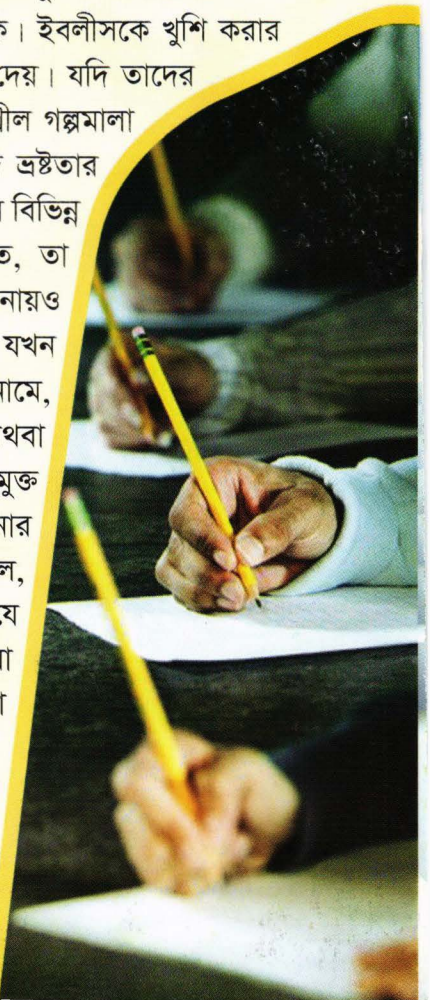 ক। ইবলীসকে খুশি করার
দেয়। যদি তাদের
গল্পমালা
ভ্রষ্টতার
বিভিন্ন
ত, তা
নায়ও
যখন
নামে,
থবা
মুক্ত
নার
ল,
যে